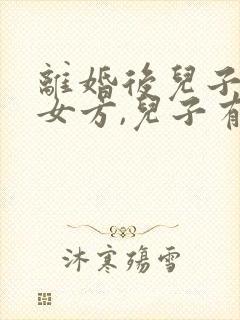 離婚後兒子
女方,兒子有
沐寒殤雪